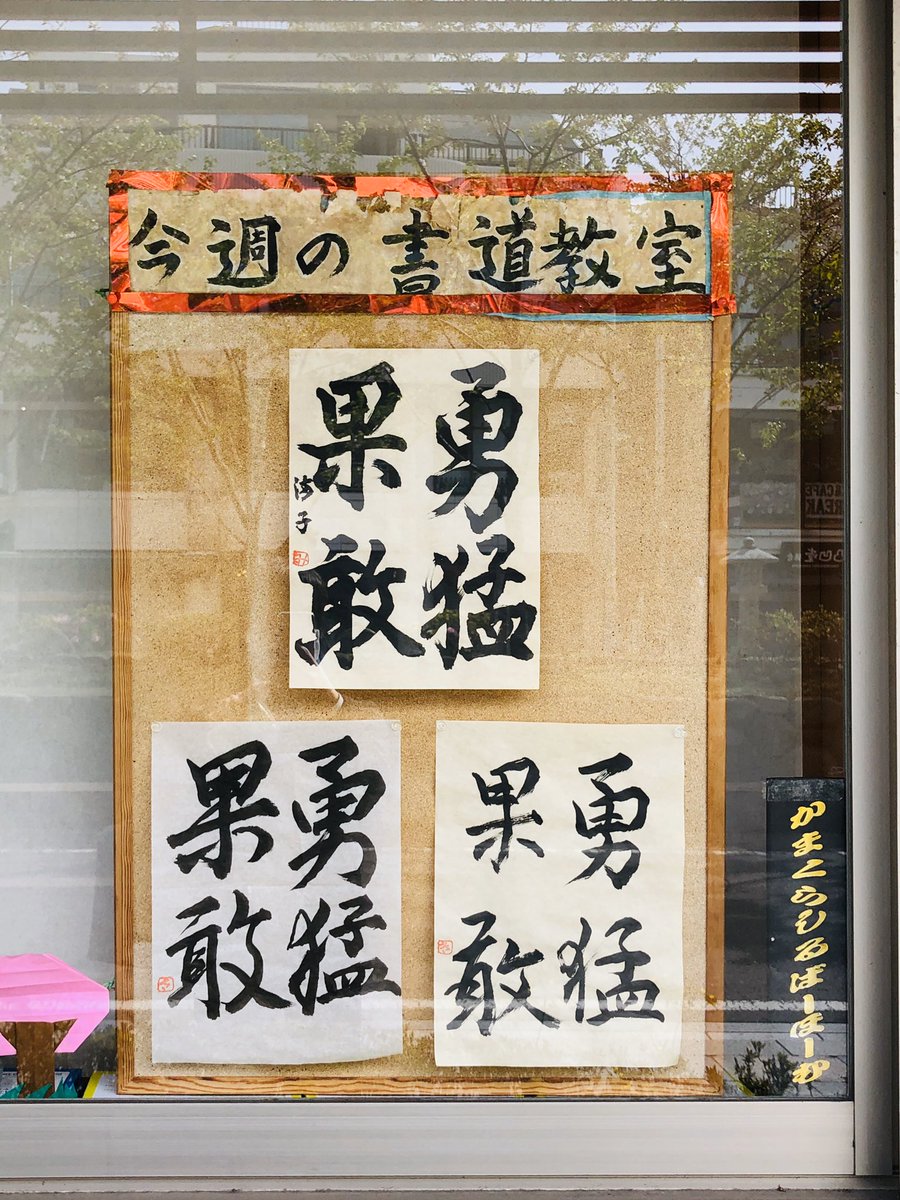 今週の書道教室
勇猛
果敢
勇猛
果敢
勇猛
果敢
かまくらしるばーほーむ